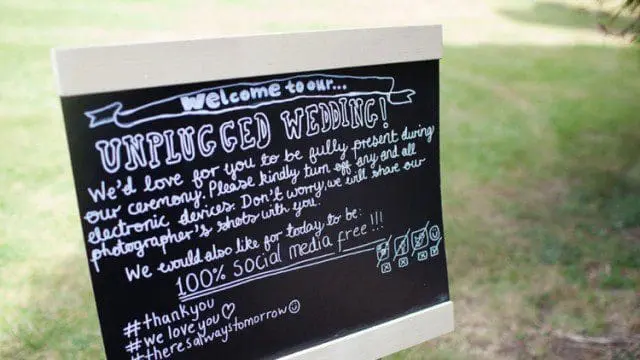 Welcome to our...
UNPLUGGED WEDDING!
We'd love for you to be fully present during
our ceremony. Please kindly turn off any and all
electronic devices. Don't worry, we will share our
photographer's shots with you.
We would also like for today to be:
100% social media free!!!
#thankyou
#we love you♡
#theresalwaystomorrow☺